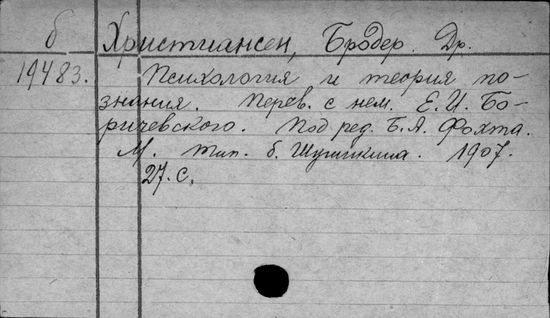 б Христиансен, Бродер. Др.
19483. Психология и теория по-
знания. Перев. с нем. Е. И. Бо-
ричевского. Под ред. Б. А. Фохта.
М. тип. б. Шушкина. 1907.
27. С.